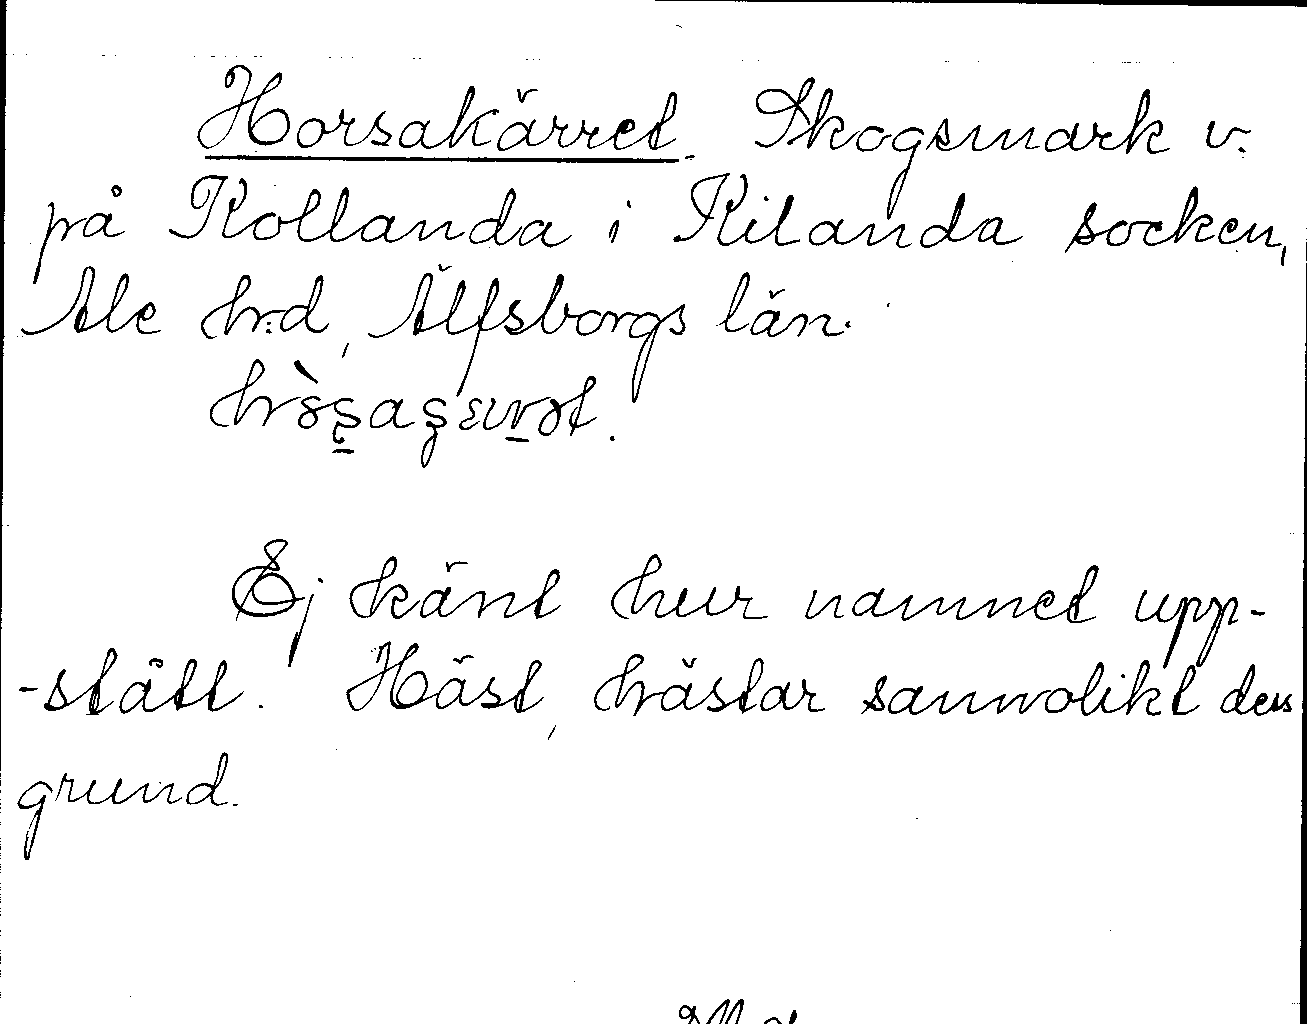 Horsakärret. Skogsmark v.
på Kollanda i Kilanda socken,
Ale h:d, Älfsborgs län.
Ej känt hur namnet upp-
-stått. Häst, hästar sannolikt dess
grund.